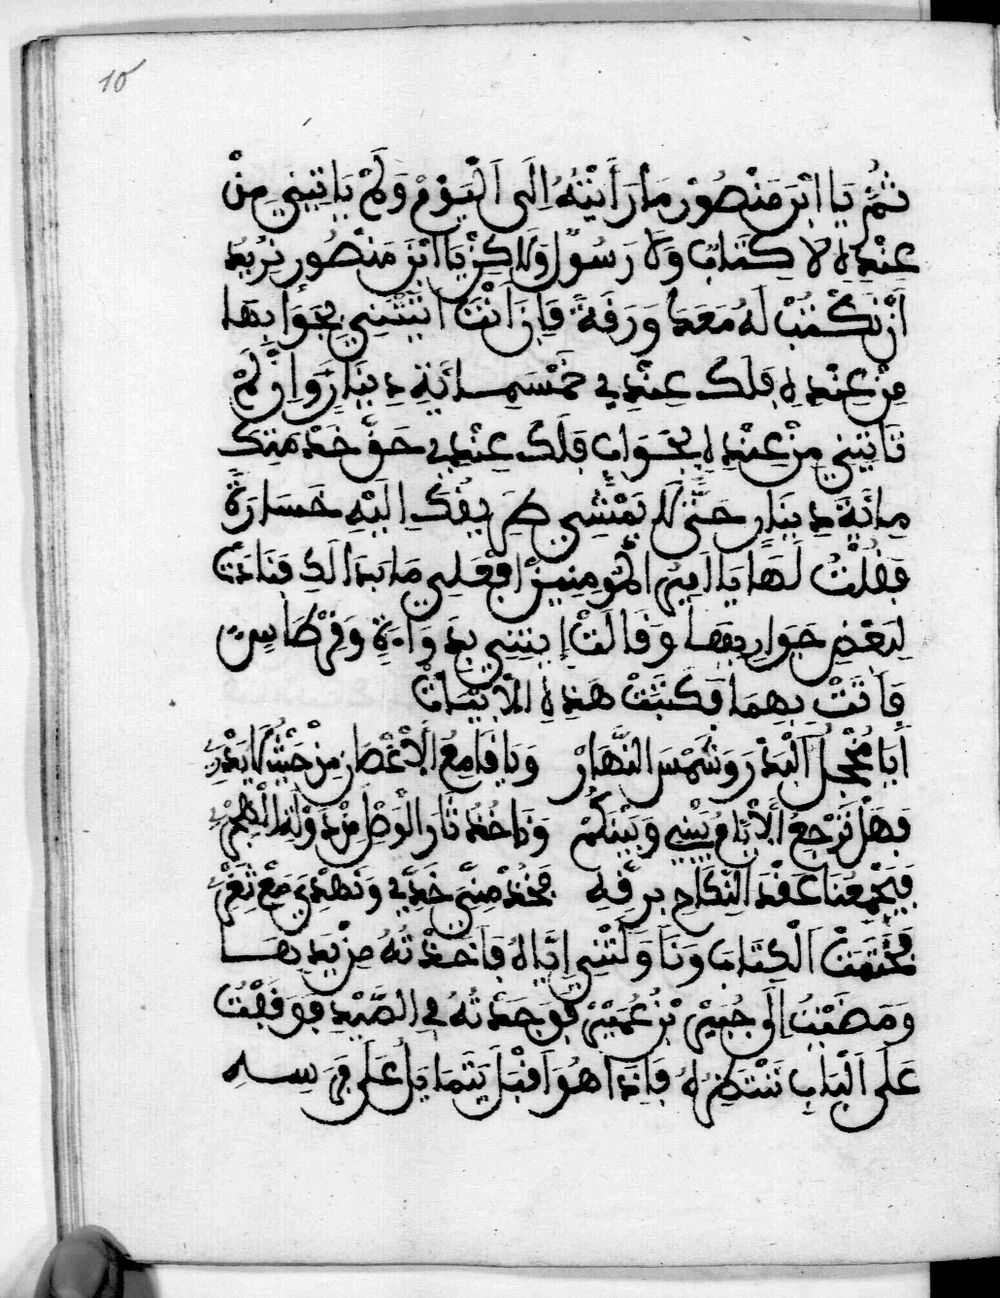 10
ثُمَّ يَا ابْنَ مَنْصُورْ مَا رَأَيْتُهُ اِلَى اَلْيَوْمْ وَلَمْ يَاتِينِي مِنْ
عِنْدِهِ لا كِتَابٌ وَلَا رَسُولٌ وَلَاكِنْ يَا ابْنَ مَنْصُور نِرُيدُ
أَنْ نَكْتُبْ لَهُ مَعَكَ وَرَقَةً فَإِنْ اَنْتَ اتَيْتَنِي بِجَوَابِهَا
مِنْ عِنْدِهِ فَلَكَ عِنْدِي خَمْسَمِائَةِ دِينَارْ وَاِنْ لَمْ
تَاتِينِي مِنْ عِنْدِهِ بِجَوَابْ فَلَكَ عِنْدِي حَقَّ خَدْمَتِكَ
مِائَةَ دِينَارِ حَتَّى لَا يَمْشِي طَرِيقُكَ اِلَيْهِ خَسَارَةً
فَقُلْتُ لَهَا يَا اَمِيرَ الْمُومِنِينَ افْعَلِي مَا بَدَا لَكِ فَنَادَتْ
لِبَعْضِ جَوَارِيهَا وَقَالَتْ إِيتِنِي بِدَوَاةِ وَقِرْطَاسٍ
فَأَتَتْ بِهِمَا فَكَتَبَتْ هَذِهِ الْأَبْيَاتْ
أَيَا مُخْجِلَ اَلْبَدْرَ وَشَمْسَ النَّهَارْ وَيَا فَامِعُ الْأَغْصَانِ مِنْ حَيْثُ لَا يَدْرِي
فَهَلْ تَرْجِعُ اَلْأَيَّامُ بَيْنِي وَبَيْنَكُمْ وَنَاخُذُ ثَارَ الْوَصْلِ مِنْ دَوْلَةِ الْهَجْرِ
فَيَجْمَعُنَا عَقْدَ النِّكَاحِ بِرِقِّهِ فَخُذْ مِنِّي خَدِّي وَنَهْدِي مَعْ ثَغْرِي
فَخَتَمَتْ اَلْكِتَابَ وَنَاوَلَتْنِي إِيَّاهُ فَأَخَذْتُهُ مِنْ يَدِهَا
وَمَضَيْتُ إِلَى جُبَيْرَ بْنُ عُمَيْرَ فَوَجَدْتُهُ فِي الصَّيْدِ فَوَقَفْتُ
عَلَى اَلْبَابِ نَنْتَظِرُهُ فَإِذَا هُوَ اَقْبَلَ يَتَمَايَلُ عَلَى فَرَسِهِ